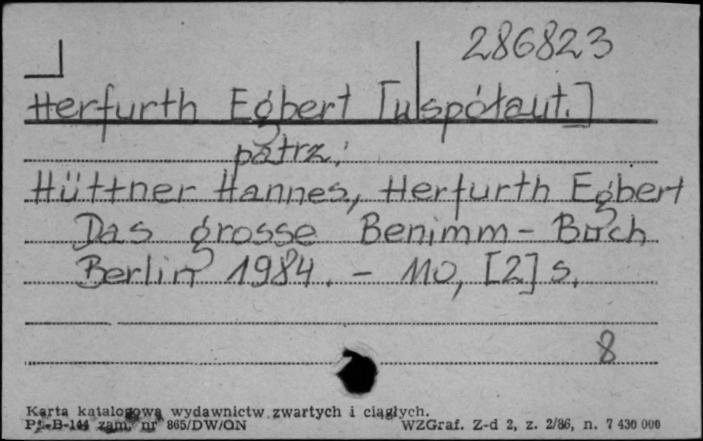 286823
Herfurth Egbert [współaut.]
patrz:
Hüttner Hannes, Herfurth Egbert
Das grosse Benimm-Buch
Berlin 1984. - 110, [2] s.
8
Karta katalogowa wydawnictw zwartych i ciągłych.
Pu-B-144 zam. nr 865/DW/ON WZGraf. Z-d 2, z. 2/86, n. 7 430 000